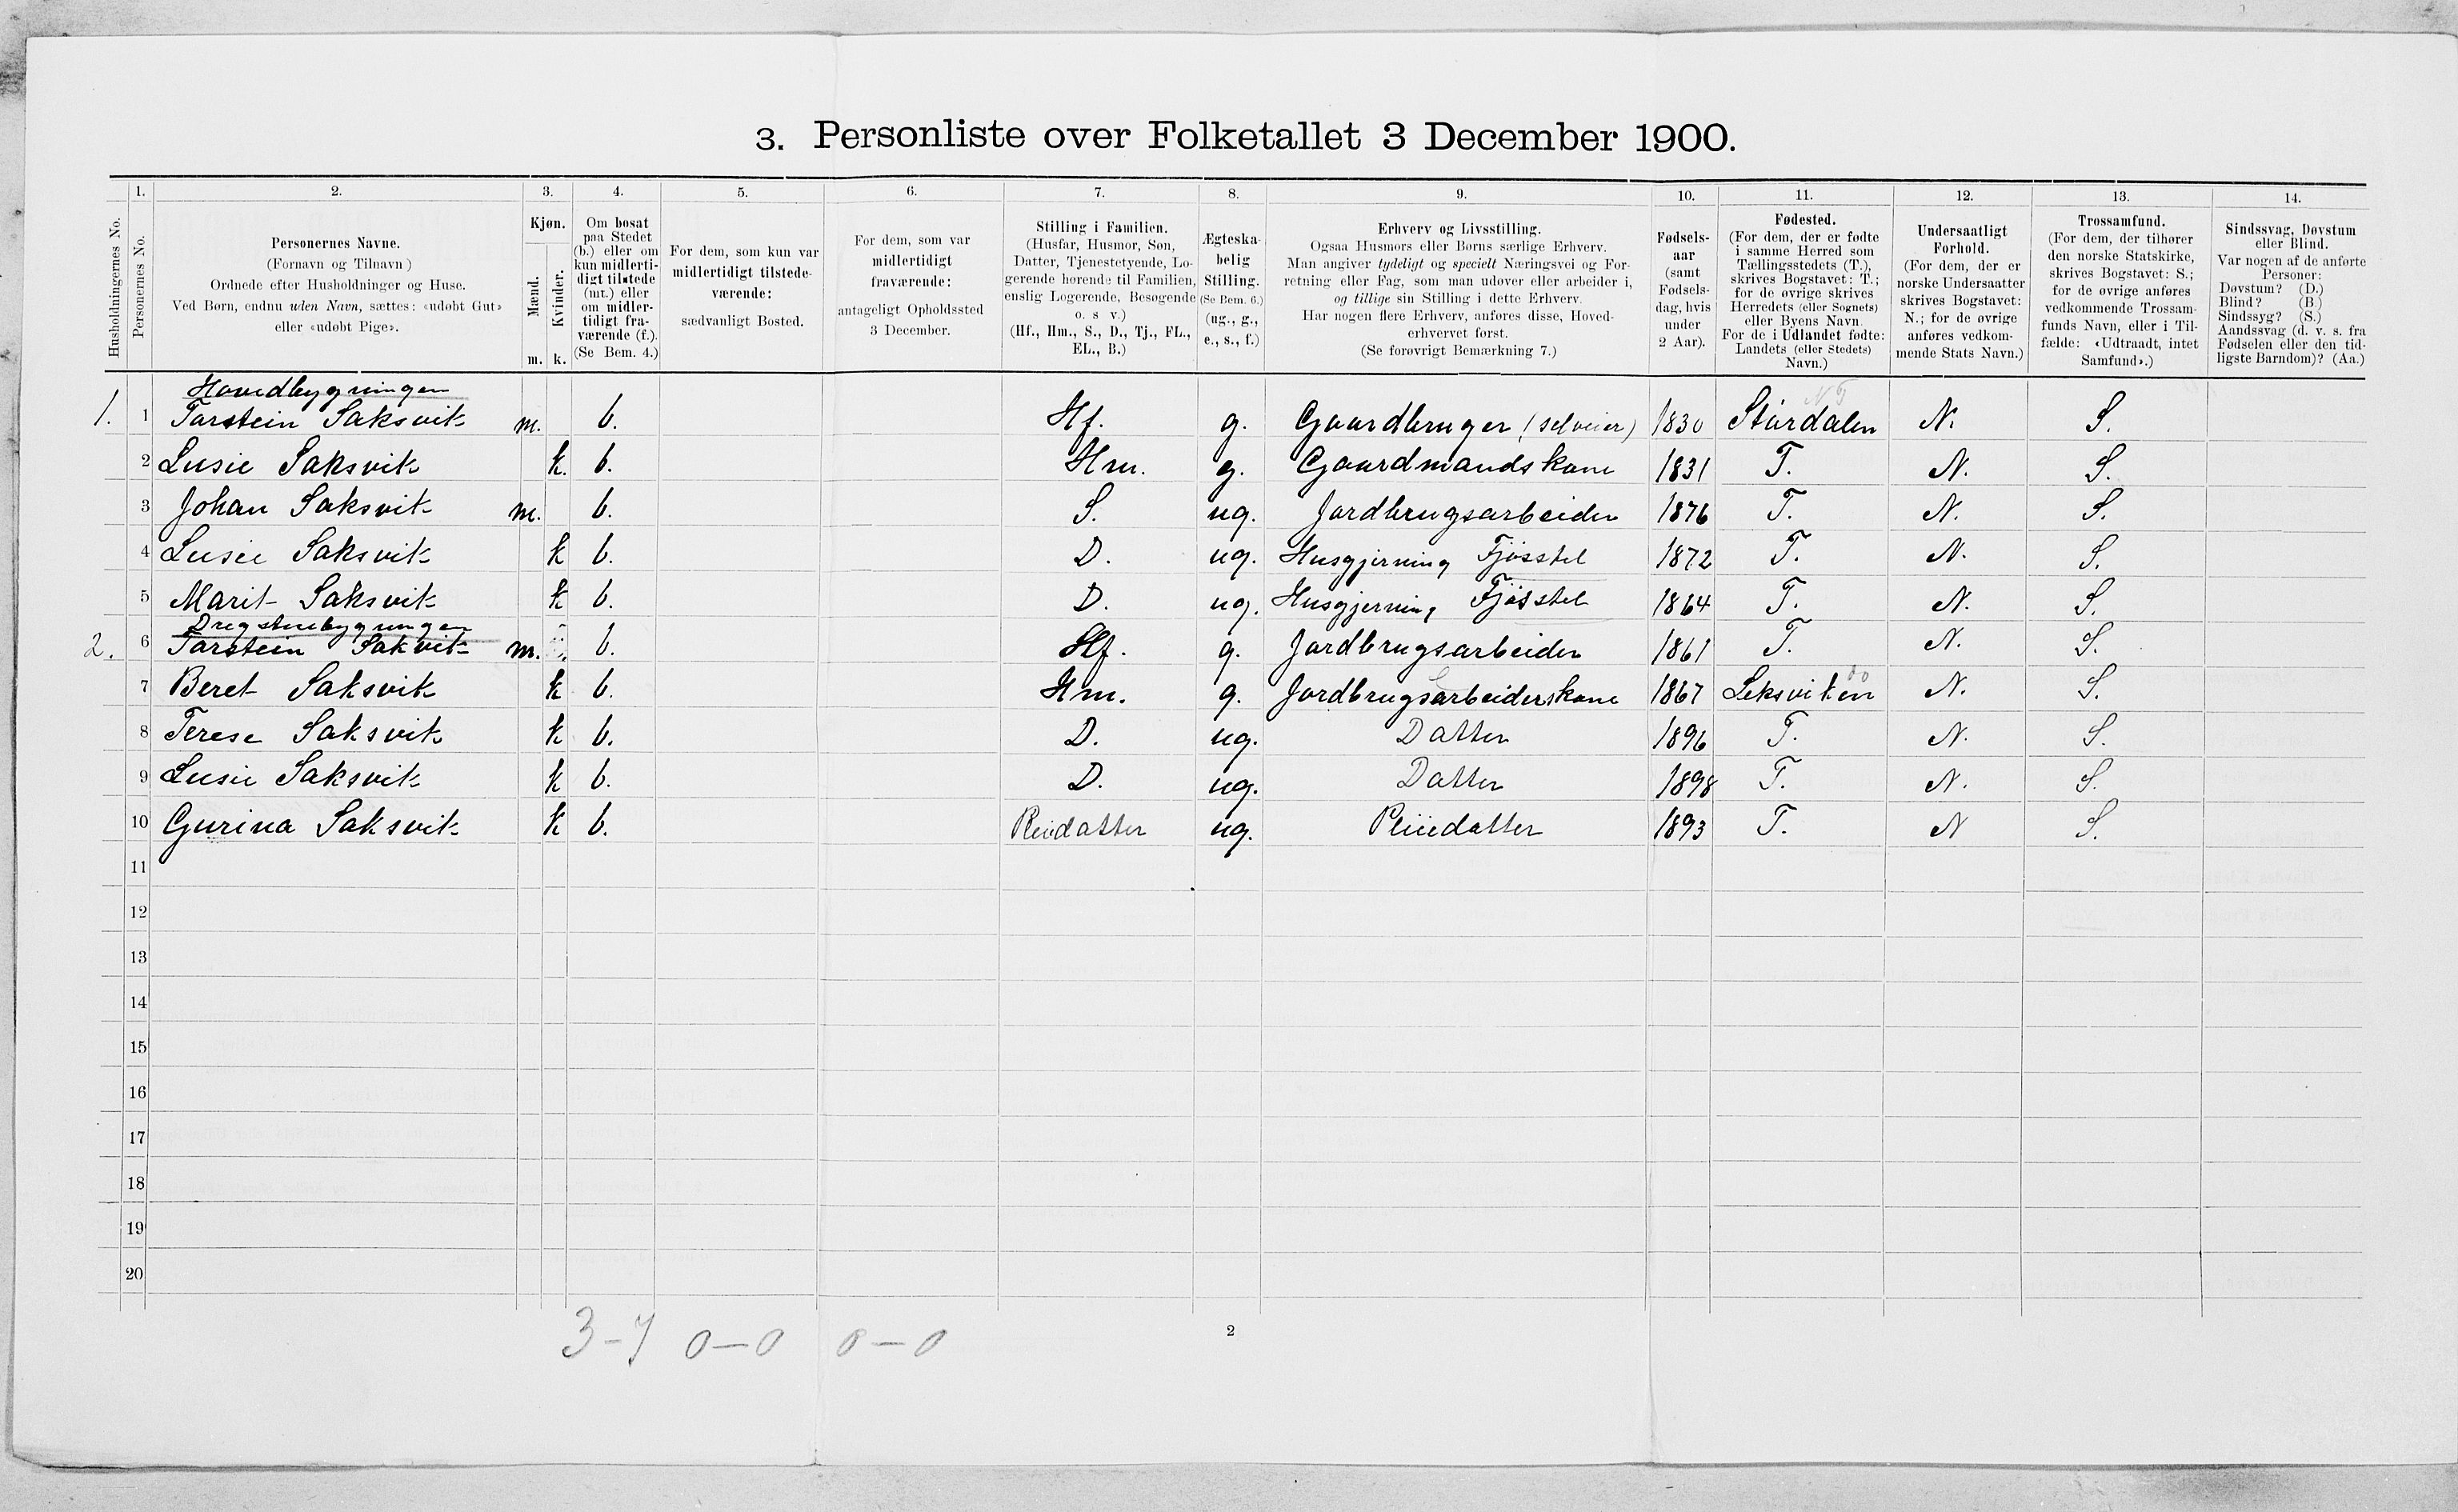 3. Personliste over Folketallet 3 December 1900.
1. 2. 3. 4. 5. 6. 7. 8. 9. 10. 11. 12. 13. 14.
Husholdningernes No.
Personernes No.
Personernes Navne.
(Fornavn og Tilnavn)
Ordnede efter Husholdninger og Huse.
Ved Børn, endnu uden Navn, sættes: «udøbt Gut»
eller «udøbt Pige».
Kjøn.
Mænd.
Kvinder.
m. k.
Om bosat
paa Stedet
(b.) eller om
kun midlerti-
digt tilstede
(mt.) eller
om midler-
tidigt fra-
værende (f.).
(Se Bem. 4.)
For dem, som kun var
midlertidigt tilstede-
værende:
sædvanligt Bosted.
For dem, som var
midlertidigt
fraværende:
antageligt Opholdssted
3 December.
Stilling i Familien.
(Husfar, Husmor, Søn,
Datter, Tjenestetyende, Lo-
gerende hørende til Familien,
enslig Logerende, Besøgende
o. s v.)
(Hf., Hm., S., D., Tj., FL.,
EL., B.)
Ægteska-
belig
Stilling.
(Se Bem. 6.)
(ug., g.,
e., s., f.)
Erhverv og Livsstilling.
Ogsaa Husmors eller Børns særlige Erhverv.
Man angiver tydeligt og specielt Næringsvei og For-
retning eller Fag, som man udøver eller arbeider i,
og tillige sin Stilling i dette Erhverv.
Har nogen flere Erhverv, anføres disse, Hoved-
erhvervet først.
(Se forøvrigt Bemærkning 7.)
Fødsels-
aar
(samt
Fødsels-
dag, hvis
under
2 Aar).
Fødested.
(For dem, der er fødte
i samme Herred som
Tællingsstedets (T.),
skrives Bogstavet: T.;
for de øvrige skrives
Herredets (eller Sognets)
eller Byens Navn.
For de i Udlandet fødte:
Landets (eller Stedets)
Navn.)
Undersaatligt
Forhold.
(For dem, der er
norske Undersaatter
skrives Bogstavet:
N.; for de øvrige
anføres vedkom-
mende Stats Navn.)
Trossamfund.
(For dem, der tilhører
den norske Statskirke,
skrives Bogstavet: S.;
for de øvrige anføres
vedkommende Trossam-
funds Navn, eller i Til-
fælde: «Udtraadt, intet
Samfund».)
Sindssvag, Døvstum
eller Blind.
Var nogen af de anførte
Personer:
Døvstum? (D.)
Blind? (B.)
Sindssyg? (S.)
Aandssvag (d. v. s. fra
Fødselen eller den tid-
ligste Barndom)? (Aa.)
Hovedbygningen
N T
1. 1 Tarstein Saksvik m. b. Hf. g. Gaardbruger (selveier) 1830 Stürdalen N. S.
2 Lusie Saksvik k. b. Hm. g. Gaardmandskone 1831 T. N. S.
3 Johan Saksvik m. b. S. ug. Jordbrugsarbeider 1876 T. N. S.
4 Lusie Saksvik k b. D. ug. Husgjerning Fjösstel 1872 T. N. S.
5 Marit Saksvik k b. D. ug. Husgjerning Fjösstel 1864 T. N. S.
2. 6 Tarstein Sakvik m. b. Hf. g. Jordbrugsarbeider 1861 T. N. S.
7 Beret Saksvik k b. Hm. g. Jordbrugsarbeiderskone 1867 Leksviken N. S.
8 Terese Saksvik k b. D. ug. Datter 1896 T. N. S.
9 Lusie Saksvik k b. D. ug. Datter 1898 T. N. S.
10 Gurina Saksvik k b. ug. 1893 T. N S.
11
12
13
14
15
16
17
18
19
20
3-7 0-0 0-0
2